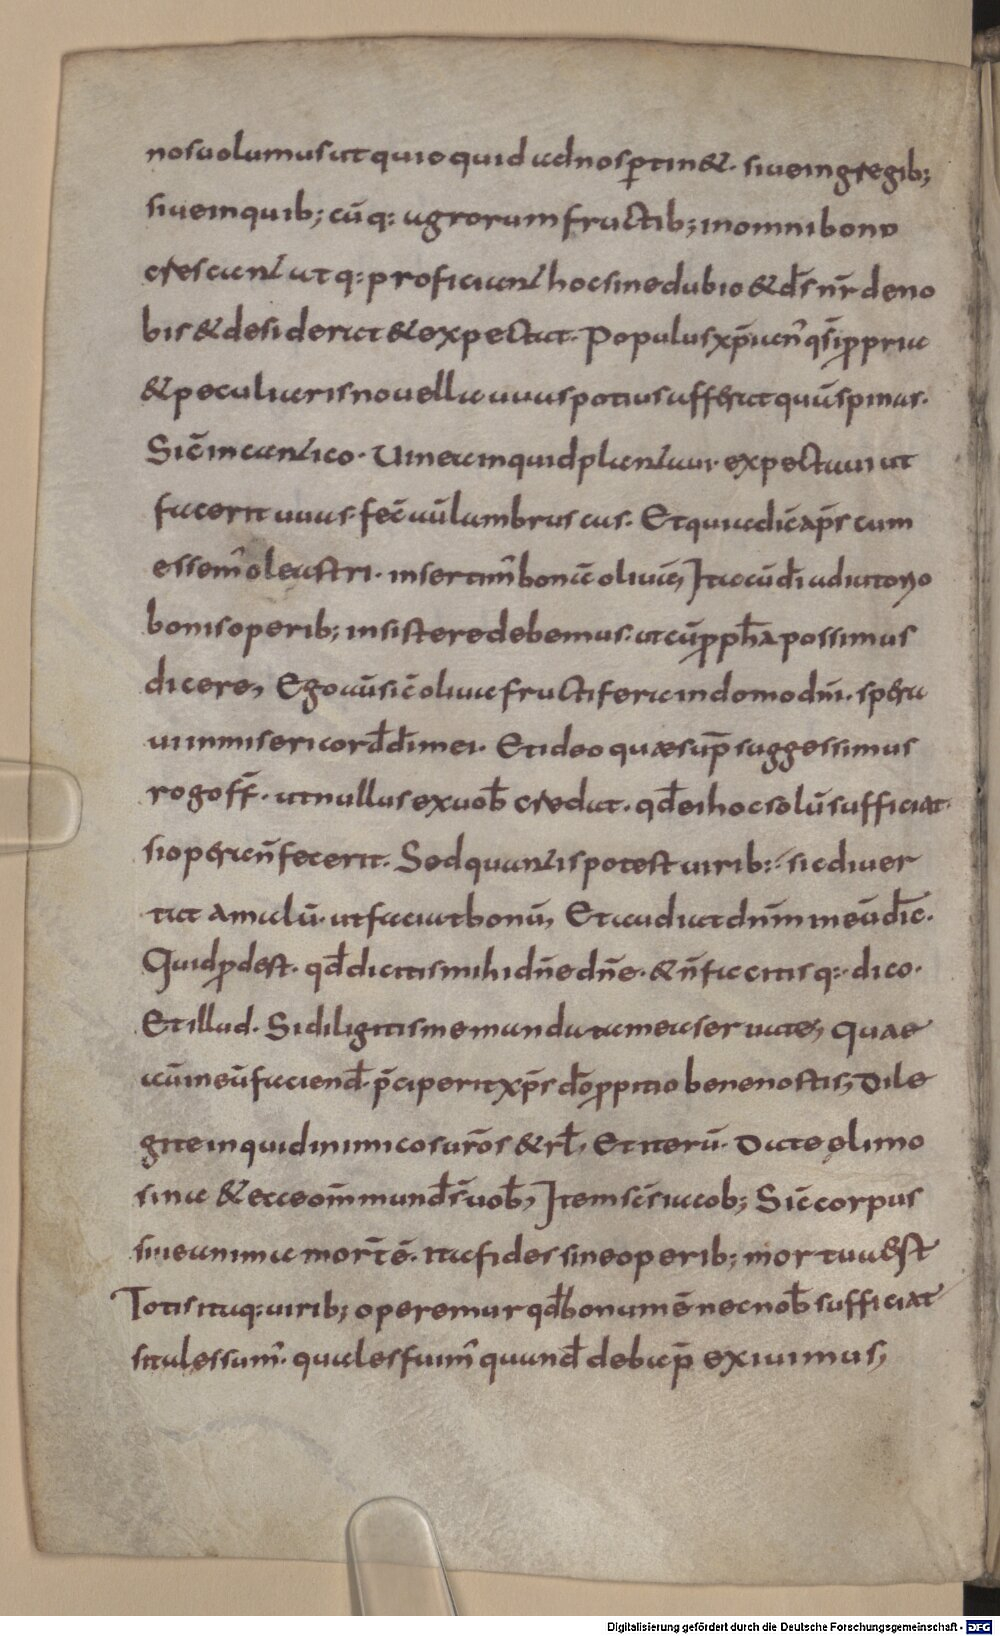 nos uolumus ut quicquid ad nos ꝑtin&. siue in gregib;
siue in quib; cū q: agrorum fructib; in omni bono
crescant utq: proficiant hoc sine dubio & d̄s nr̄ de no
bis & desiderat & expectat. Populus xp̄ian̄ q̄si ꝓpria
& peculiaris nouella uuas potius afferat quā spinas.
Sic̄ in cantico. Uinea inquid plantaui. expectaui ut
facerit uuas. fec̄ aūlambruscas. Et quia dic̄ ap̄s cum
essem̄ oleastri. inserti sum̄ bonę oliuę, Ita cū d̄i adiutorio
bonis operib; insistere debemus. ut cū ꝓph̄a possimus
dicere, Ego aū sic̄ oliua fructifera in domo dn̄i. spera
ui in misericord̄ d̄i mei. Et ideo quæ sup̄ suggessimus
rogo ff̄. ut nullus ex uob̄ credat. qd̄ ei hoc solū sufficiat.
si opera n̄ fecerit. Sed quantis potest uirib: sic diuer
tat a malū. ut faciat bonū, Et audiat dn̄m meū dic̄.
Quid ꝓdest. qd̄ dicitis mihi dn̄e dn̄e. & n̄ facitis q: dico.
Et illud. Si diligitis me mandata mea seruate, Quae
cū meū faciend̄ p̄ciperit xp̄s d̄o ꝓpitio bene nostis; Dile
gite inquid inimicos ur̄os & rl̄, Et iterū. Date elimo
sina & ecce om̄ mund̄ s̄ uob̄, Item sc̄s iacob; Sic̄ corpus
sine anima mort̄ ē. ita fides sine operib; mortua est
Totis itaq: uirib; operemur qd̄ bonum ē nec nob̄ sufficiat
si tales sum̄. quales fuim̄ quand̄ de bap̄ exiuimus,
Digitalisierung gefördert durch die Deutsche Forschungsgemeinschaft - DFG